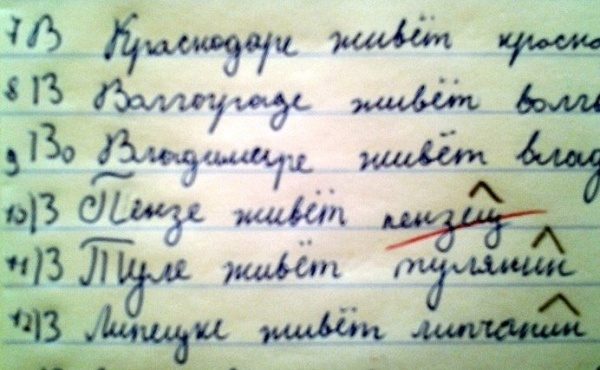 7 В Краснодаре живёт красно
8 В Волгограде живёт волго
9 Во Владимире живёт влад
10) В Пензе живёт пензеец
11) В Туле живёт тулянин
12) В Липецке живёт липчанин